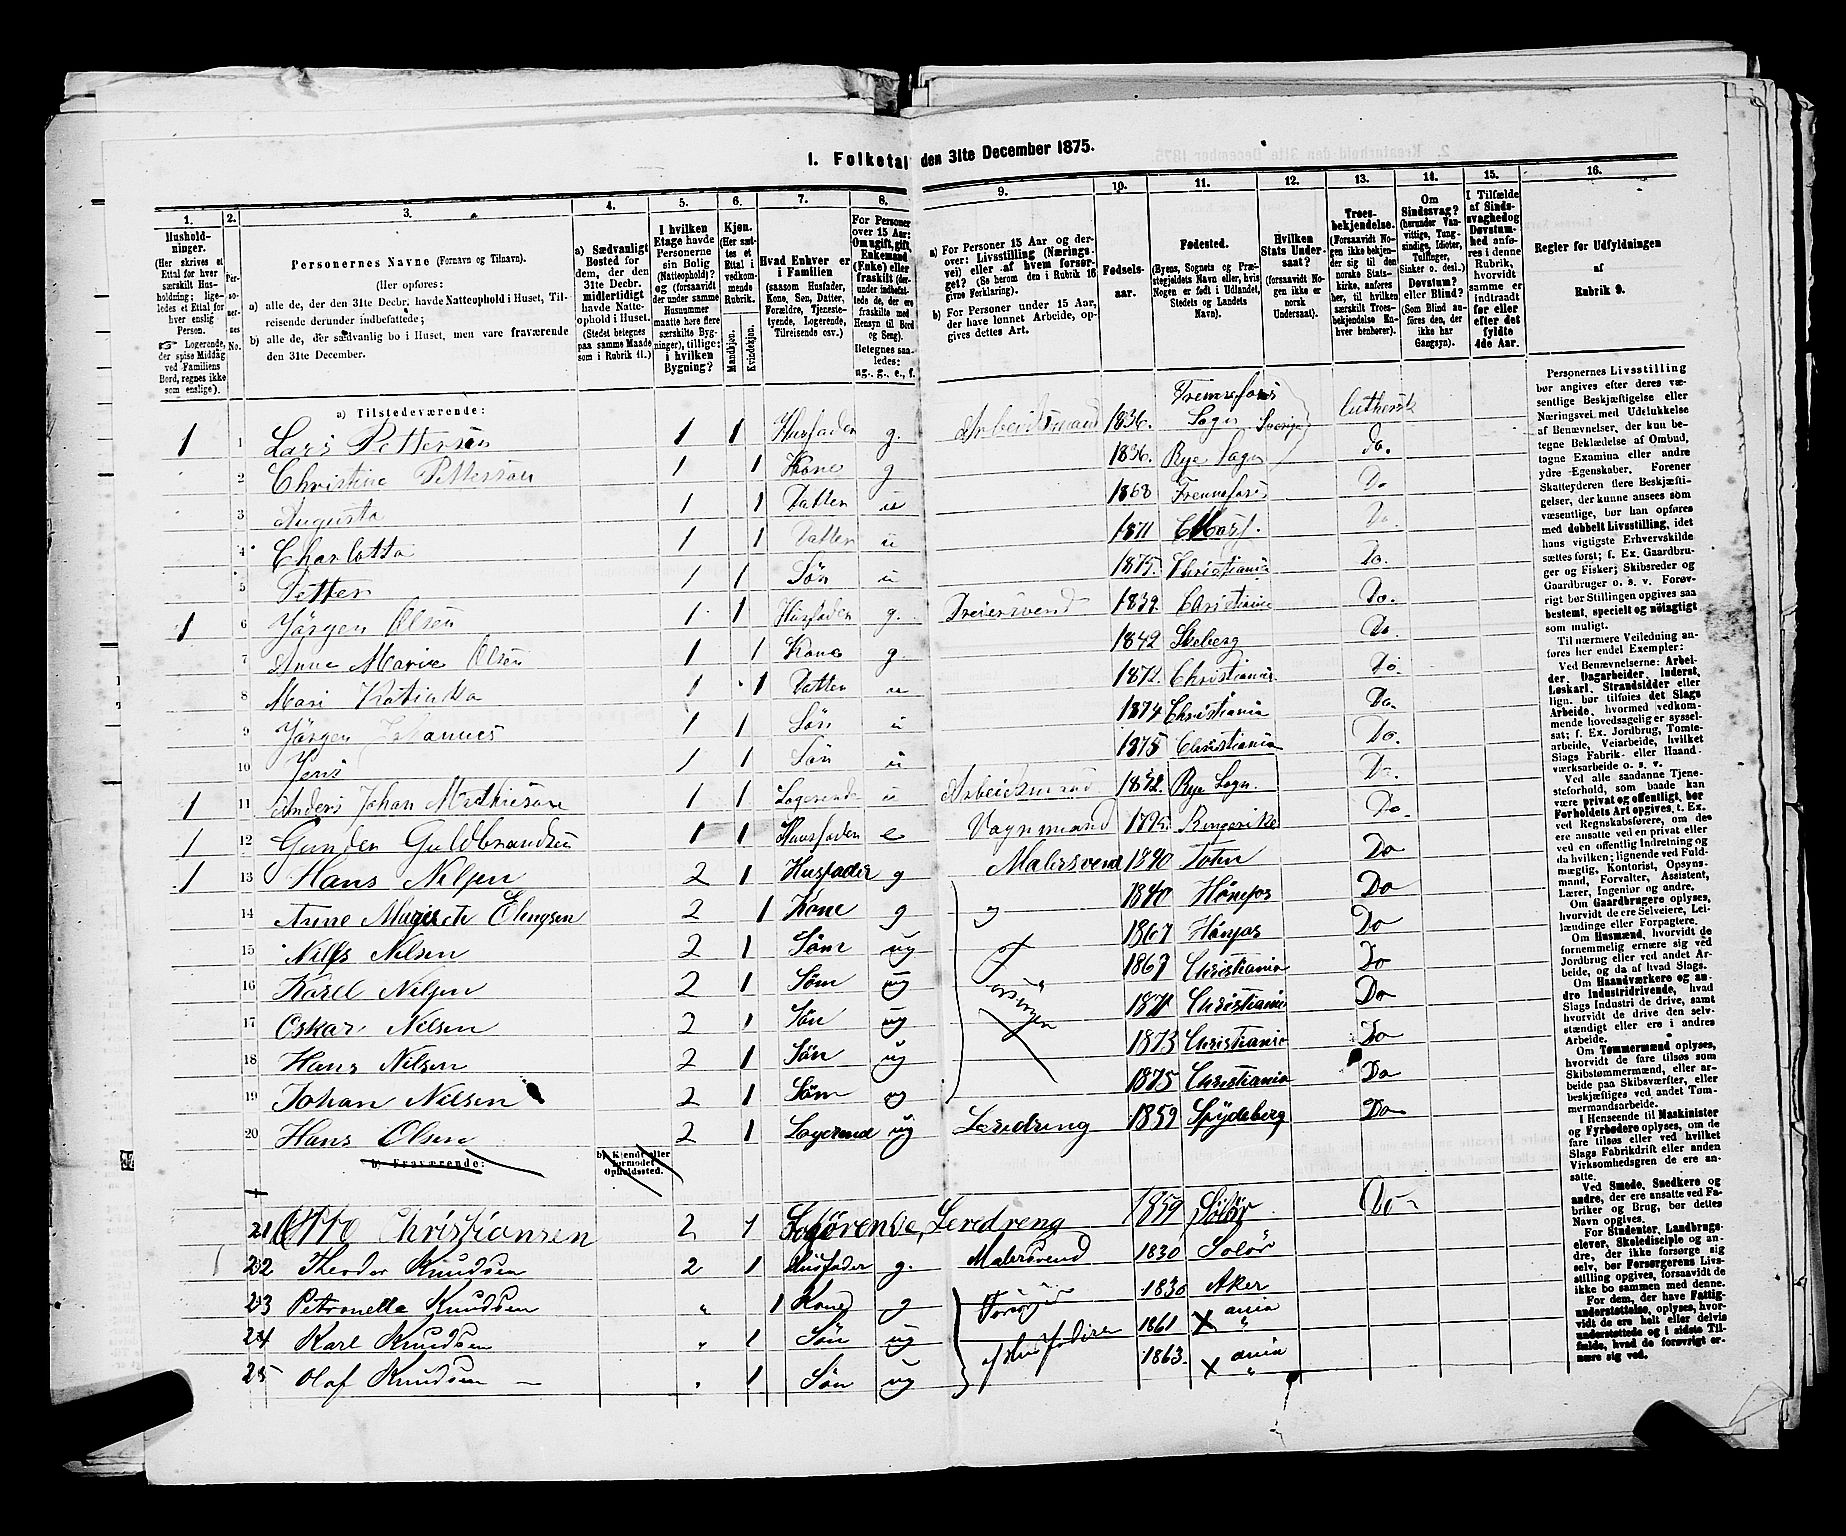 1. Folketal den 31te December 1875.
1.
2.
3.
4.
5.
6.
7.
8.
9.
10.
11.
12.
13.
14.
15.
16.
Husholdninger.
(Her skrives et Ettal for hver særskilt Husholdning; ligeledes et Ettal for hver enslig Person.
☞ Logerende, der spise Middag ved Familiens Bord, regnes ikke som enslige).
Personernes No.
Personernes Navne (Fornavn og Tilnavn).
(Her opføres:
a) alle de, der den 31te Decbr. havde Natteophold i Huset, Tilreisende derunder indbefattede;
b) alle de, der sædvanlig bo i Huset, men vare fraværende den 31te December.
a) Sædvanligt Bosted for dem, der den 31te Decbr. midlertidigt havde Natteophold i Huset. (Stedet betegnes paa samme Maade som i Rubrik 11.)
I hvilken Etage havde Personerne sin Bolig (Natteophold)? (forsaavidt der under samme Husnummer maatte høre flere særskilte Bygninger), tillige: i hvilken Bygning?
Kjøn. (Her sættes et Ettal i vedkommende Rubrik.
Mandkjøn.
Kvindekjøn.
Hvad Enhver er i Familien
(saasom Husfader, Kone, Søn, Datter, Forældre, Tjenestetyende, Logerende, Tilreisende osv.)
For Personer over 15 Aar: Om ugift, gift, Enkemand (Enke) eller fraskilt (derunder indbefattede de, der ere fraskilte med Hensyn til Bord og Seng).
Betegnes saaledes: ug., g., e., f.
a) For Personer 15 Aar og derover: Livsstilling (Næringsvei) eller af hvem forsørget? (Se herom den i Rubrik 16 givne Forklaring).
b) For Personer under 15 Aar, der have lønnet Arbeide, opgives dettes Art.
Fødselsaar.
Fødested.
(Byens, Sognets og Præstegjeldets Navn eller, hvis Nogen er født i Udlandet, Stedets og Landets Navn).
Hvilken Stats Undersaat? (forsaavidt Nogen ikke er norsk Undersaat).
Troesbekjendelse.
(Forsaavidt Nogen ikke bekjender sig til den norske Statskirke, anføres her, til hvilken særskilt Troesbekjendelse Enhver henhører).
Om Sindssvag? (herunder Vanvittige, Tungsindige, Idioter, Tullinger, Sinker o. desl.) Døvstum? eller Blind? (Som Blind anføres den, der ikke har Gangsyn).
I Tilfælde af Sindssvaghed og Døvstumhed anføres i denne Rubrik, hvorvidt samme er indtraadt før eller efter det fyldte 4de Aar.
Regler for Udfyldningen
af
Rubrik 9.
a) Tilstedeværende:
1 1 Lars Petterson 1 1 Husfader g. Arbeidsmand 1836. Sogn Sverige Luthersk
2 Christine Petterson 1 1 Kone g 1836. Rye Sogn Do.
3 Augusta 1 1 Datter u 1868 Do
4 Charlotta 1 1 Datter u 1871 Do.
5 Petter 1 1 Søn u 1875. Christiania Do.
1 6 Jörgen Olsen 1 1 Husfader g. Dreiersvend 1839. Christiania Do.
7 Anne Marie Olsen 1 1 Kone g 1842 Skeberg Do
8 Mari 1 1 Datter u 1872. Christiania Do
9 Jörgen Johannes 1 1 Søn u 1874 Christiania Do.
10 Jens 1 1 Søn u 1875 Christiania Do.
1 11 Anders Johan Mathiesen 1 1 Logerende u Arbeidsmand 1832. Rye Sogn. Do.
1 12 Gunder Guldbrandsen 1 1 Huusfader e Vognmand 1795. Ringerike Do.
1 13 Hans Nilsen 2 1 Husfader g Malersvend 1840 Do
14 Anne 2 1 Kone g 1840 Hönefos Do
15 Nills Nelsen 2 1 Søn ug 1867 Hönefos Do
16 Karel Nilsen 2 1 Søn ug 1869 Christiania Do
17 Oskar Nelsen 2 1 Søn ug 1871 Christiania Do
18 Hans Nelsen 2 1 Søn ug 1873 Christiania Do
19 Johan Nelsen 2 1 Søn ug 1875 Christiania Do
20 Hans Olsen 2 1 Logerend ug Leredreng 1859 Spydeberg Do
b) Fraværende:
b) Kjendt eller formodet Opholdssted.
21 Otto Christiansen 2 1 Logörende, Leredreng 1859 Solör Do
22 Theodor Knudsen 2 1 Husfader g. Malersvend 1830 Solör
23 Petronella Knudsen " 1 Kone g 1830 Aker
24 Karl Knudsen " 1 Søn ug af Husfaderen 1861 X ania
25 Olaf Knudsen " 1 Søn ug 1863. X ania
Personernes Livsstilling bør angives efter deres væsentlige Beskjæftigelse eller Næringsvei med Udelukkelse af Benævnelser, der kun betegne Beklædelse af Ombud, tagne Examina eller andre ydre Egenskaber. Forener Skatteyderen flere Beskjæftigelser, der kunne ansees som væsentlige, bør han opføres med dobbelt Livsstilling, idet hans vigtigste Erhvervskilde sættes først; f. Ex. Gaardbruger og Fisker; Skibsreder og Gaardbruger o. s. v. Forøvrigt bør Stillingen opgives saa bestemt, specielt og nøiagtigt som muligt.
Til nærmere Veiledning anføres her endel Exempler:
Ved Benævnelserne: Arbeider, Dagarbeider, Inderst, Løskarl, Strandsidder eller lign. bør tilføies det Slags Arbeide, hvormed vedkommende hovedsagelig er sysselsat; f. Ex. Jordbrug, Tomtearbeide, Veiarbeide, hvilket Slags Fabrik- eller Haandværksarbeide o. s. v.
Ved alle saadanne Tjenesteforhold, som baade kan være privat og offentligt, bør Forholdets Art opgives, t. Ex. ved Regnskabsførere, om de ere ansatte ved en privat eller ved en offentlig Indretning og da hvilken; lignende ved Fuldmægtig, Kontorist, Opsynsmand, Forvalter, Assistent, Lærer, Ingeniør og andre.
Om Gaardbrugere oplyses, hvorvidt de ere Selveiere, Leilændinge eller Forpagtere.
Om Husmænd, hvorvidt de fornemmelig ernære sig ved Jordbrug eller ved andet Arbeide, og da af hvad Slags.
Om Haandværkere og andre Industridrivende, hvad Slags Industri de drive, samt hvorvidt de drive den selvstændigt eller ere i andres Arbeide.
Om Tømmermænd oplyses, hvorvidt de fare tilsøs som Skibstømmermænd, eller arbeide paa Skibsværfter, eller beskjæftiges ved andet Tømmermandsarbeide.
I Henseende til Maskinister og Fyrbødere oplyses, om de fare tilsøs eller ved hvilket Slags Fabrikdrift eller anden Virksomhedsgren de ere ansatte.
Ved Smede, Snedkere og andre, der ere ansatte ved Fabriker og Brug, bør dettes Navn opgives.
For Studenter, Landbrugselever, Skoledisciple og andre, der ikke forsørge sig selv, bør Forsørgerens Livsstilling opgives, forsaavidt de ikke bo sammen med denne.
For dem, der have Fattigunderstøttelse, oplyses, hvorvidt de ere helt eller delvis understøttede og i sidste Tilfælde, hvad de forøvrigt ernære sig ved.